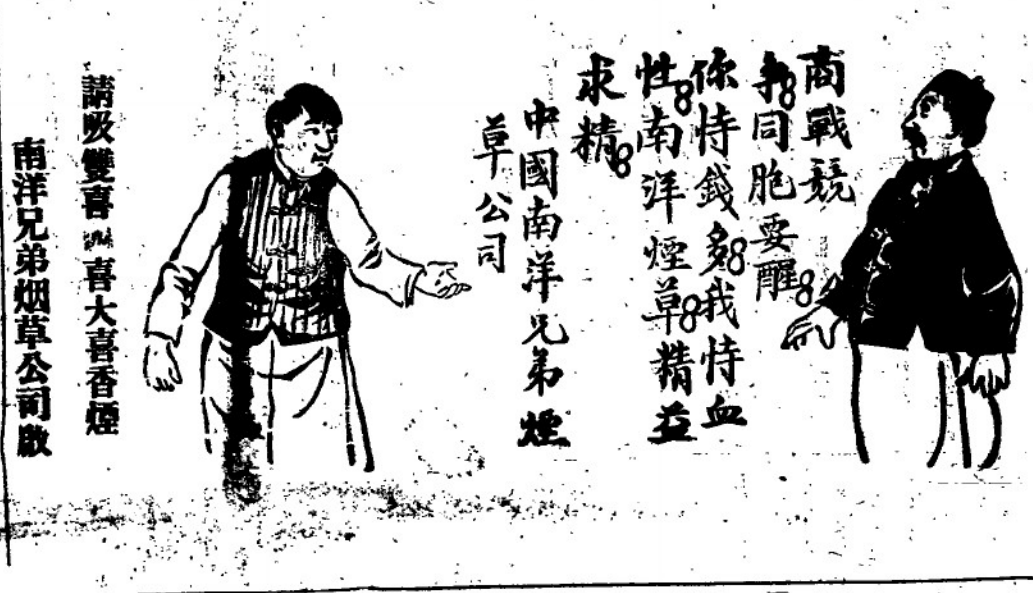 商戰競
爭同胞要醒
你恃錢多我恃血
性南洋煙草精益
求精
中國南洋兄弟煙
草公司
請吸雙喜喜大喜香煙
南洋兄弟烟草公司啟